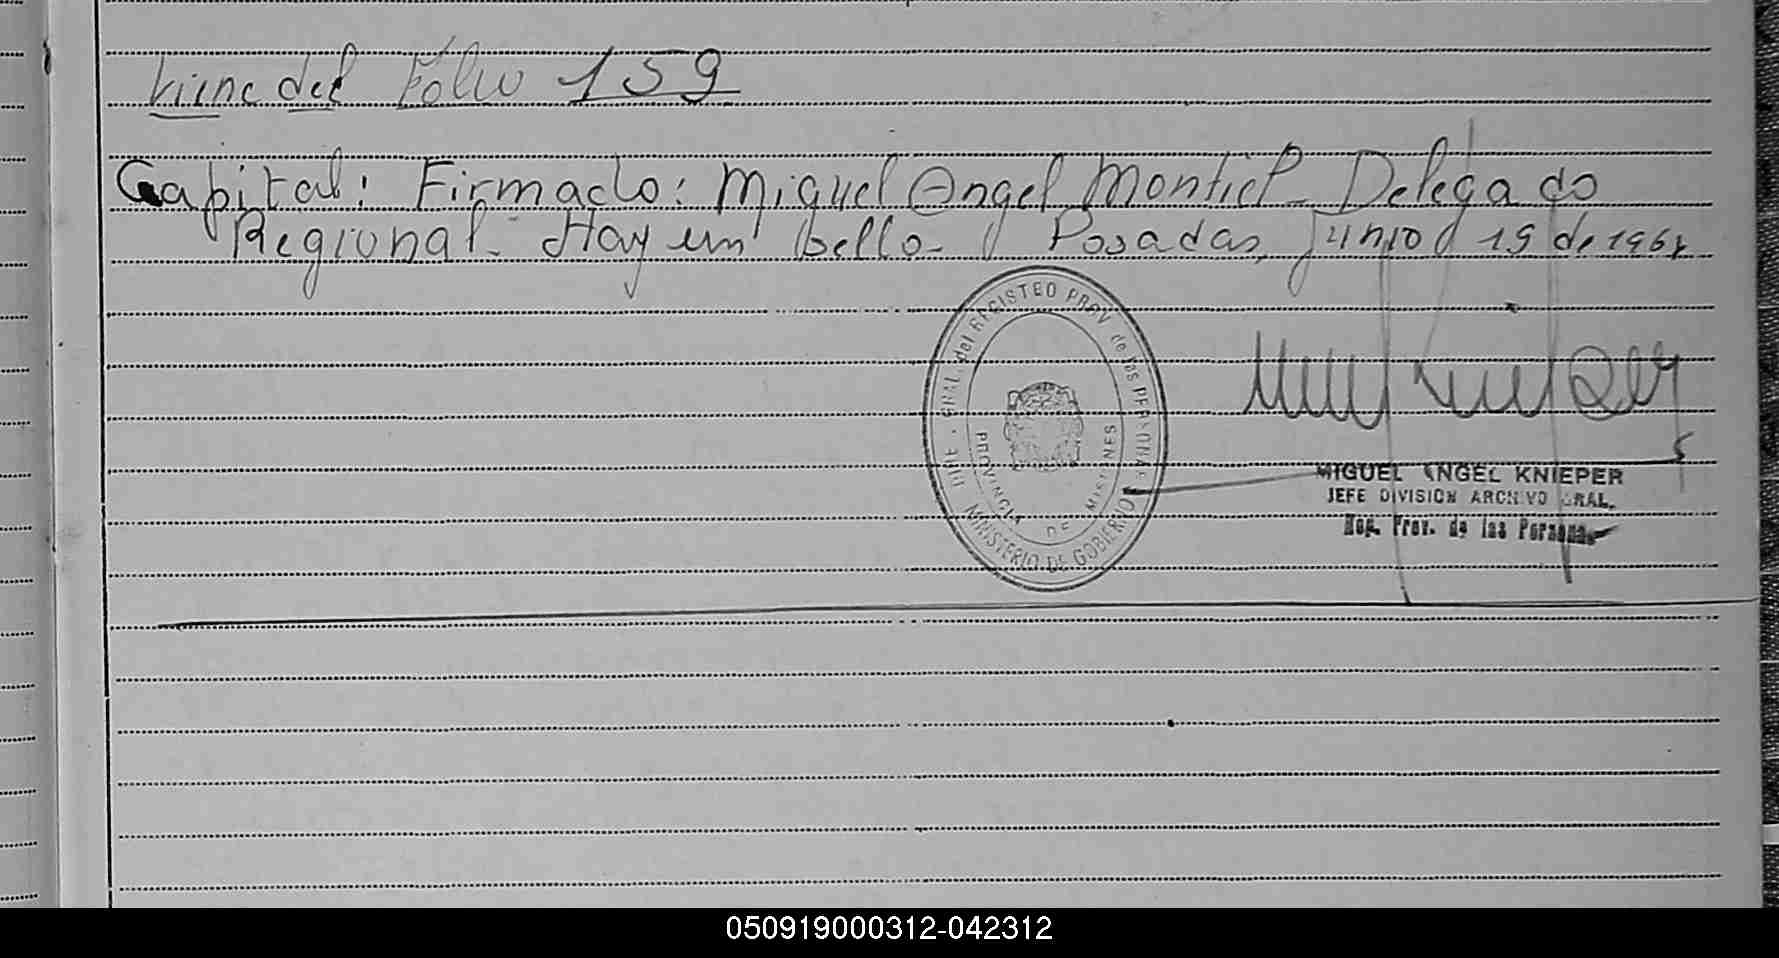 Viene del Folio 159
Capital: Firmado: Miguel Angel Montiel - Delegado
Regional - Hay un Sello - Posadas, Junio 19 de 196
DIRE. GRAL. del REGISTRO PROV. de las PERSONAS
PROVINCIA DE MISIONES
MINISTERIO DE GOBIERNO
MIGUEL ANGEL KNIEPER
JEFE DIVISION ARCHIVO GRAL.
Reg. Prov. de las Personas
050919000312-042312